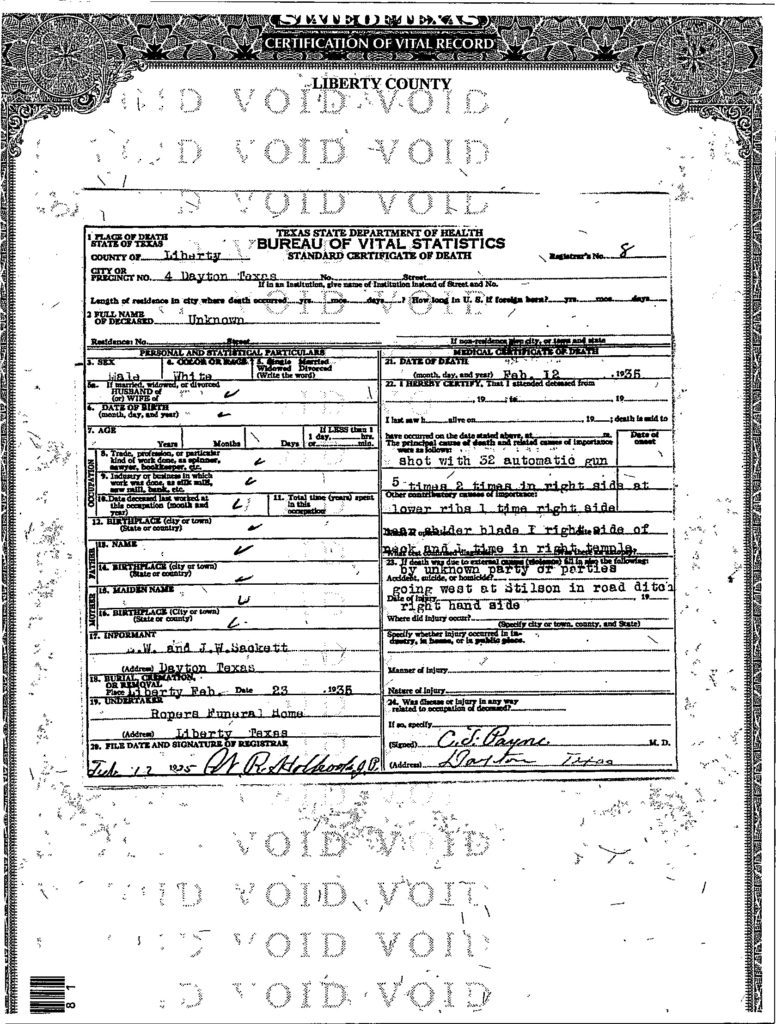 STATE OF TEXAS
CERTIFICATION OF VITAL RECORD
LIBERTY COUNTY
VOID VOID
VOID VOID
VOID VOID
1 PLACE OF DEATH
STATE OF TEXAS
COUNTY OF Liberty
TEXAS STATE DEPARTMENT OF HEALTH
BUREAU OF VITAL STATISTICS
STANDARD CERTIFICATE OF DEATH
Registrar's No. 8
CITY OR
PRECINCT NO. 4 Dayton Texas No. Street
If in an Institution, give name of Institution instead of Street and No.
Length of residence in city where death occurred yrs. mos. days ? How long in U. S. if foreign born? yrs. mos. days
2 FULL NAME
OF DECEASED Unknown
Residence: No. Street If non-residence give city, or town and state
PERSONAL AND STATISTICAL PARTICULARS
3. SEX
Male
4. COLOR OR RACE
White
5. Single Married
Widowed Divorced
(Write the word)
5a. If married, widowed, or divorced
HUSBAND of
(or) WIFE of
6. DATE OF BIRTH
(month, day, and year)
7. AGE
Years Months Days
If LESS than 1
1 day, hrs.
or min.
OCCUPATION
8. Trade, profession, or particular
kind of work done, as spinner,
sawyer, bookkeeper, etc.
9. Industry or business in which
work was done, as silk mill,
saw mill, bank, etc.
10. Date deceased last worked at
this occupation (month and
year)
11. Total time (years) spent
in this
occupation
12. BIRTHPLACE (city or town)
(State or country)
FATHER
13. NAME
14. BIRTHPLACE (city or town)
(State or country)
MOTHER
15. MAIDEN NAME
16. BIRTHPLACE (City or town)
(State or county)
17. INFORMANT
.W. and J.W.Sackett
(Address) Dayton Texas
18. BURIAL, CREMATION,
OR REMOVAL
Place Liberty Feb. Date 23 , 1935
19. UNDERTAKER
Ropers Funeral Home
(Address) Liberty Texas
20. FILE DATE AND SIGNATURE OF REGISTRAR
Feb 12 1935
MEDICAL CERTIFICATE OF DEATH
21. DATE OF DEATH
(month, day, and year) Feb. 12 , 1935
22. I HEREBY CERTIFY, That I attended deceased from
, 19 ; to , 19
I last saw h alive on , 19 ; death is said to
have occurred on the date stated above, at m.
The principal cause of death and related causes of importance
were as follows:
Date of
onset
shot with 32 automatic gun
5 times 2 times in right side at
Other contributory causes of importance:
lower ribs 1 time right side
near shulder blade I right side of
neck and 1 time in right temple
23. If death was due to external causes (violence) fill in also the following:
by unknown party or parties
Accident, suicide, or homicide?
going west at Stilson in road ditch
Date of Injury 19
right hand side
Where did injury occur?
(Specify city or town, county, and State)
Specify whether injury occurred in in-
dustry, in home, or in public place.
Manner of injury
Nature of injury
24. Was disease or injury in any way
related to occupation of deceased?
If so, specify
(Signed) C.S. Payne M. D.
(Address) Dayton Texas
VOID VOID
VOID VOID
VOID VOID
VOID VOID
81